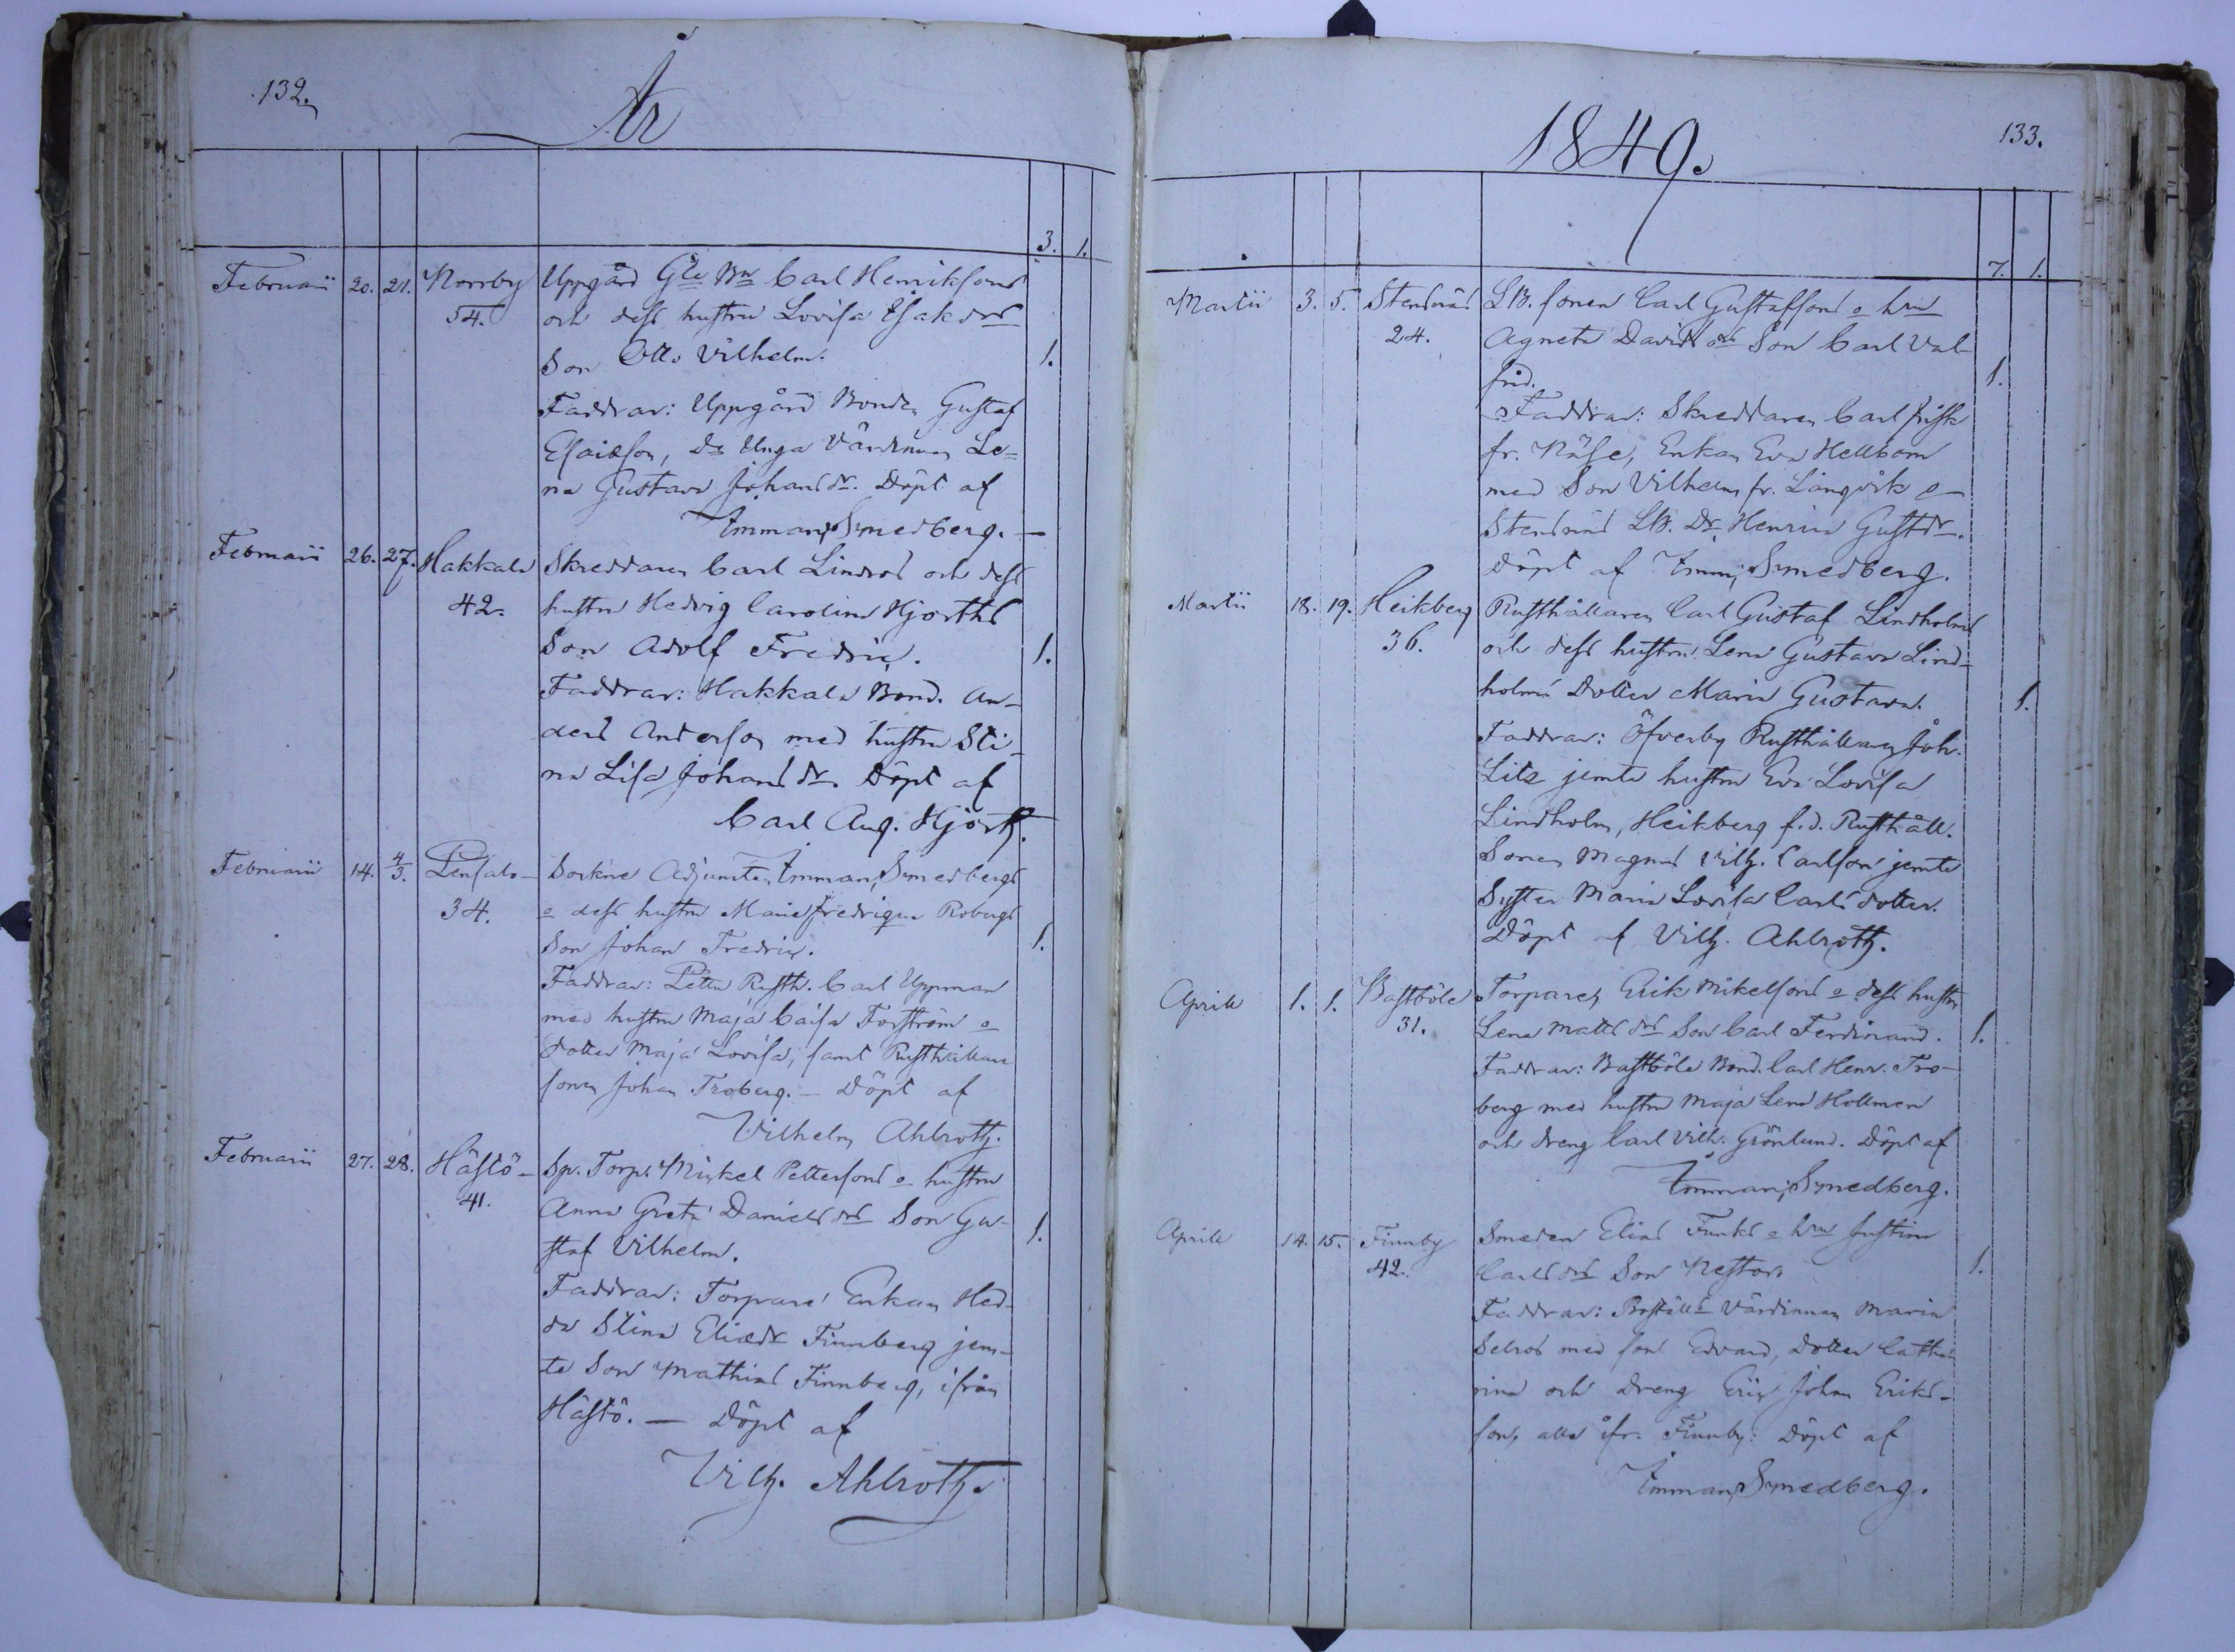 132.
År
3. 1.
Februarii 20. 21. Norrby Uppgård Gle Bn Carl Henriksons
54. och dess hustru Lovisa Esaksdrs
Son Otto Vilhelm. 1.
Faddrar: Uppgård Bonden Gustaf
Esaiæson, Do Unga Värdinnan Le=
na Gustava Johansdr. Döpt af
Emman. Smedberg.
Februarii 26. 27. Hakkala Skreddaren Carl Lindros och dess
42. hustru Hedvig Carolina Hjorths
Son Adolf Fredric. 1.
Faddrar: Hakkala Bond. An-
ders Anderson med hustru Sti-
na Lisa Johansdr. Döpt af
Carl Aug. Hjorth.
Februarii 14. 4/3. Pensalo- Sockne Adjuncten Emman. Smedbergs
34. o dess hustru Maria Fredrique Robergs
Son Johan Fredric. 1.
Faddrar: Rusth. Carl Uppman
med hustru Maja Caisa Forström o
dotter Maja Lovisa, samt Rusthållare
sonen Johan Troberg. – Döpt af
Vilhelm Ahlroth.
Februarii 27. 28. Hästö- Sp. Torp. Mickel Pettersons o hustru
41. Anna Greta Danielsdrs Son Gu-
staf Vilhelm. 1.
Faddrar: Torpare Enkan Hed-
da Stina Eliædr Finnberg jem-
te Son Mathias Finnberg, ifrån
Hästö. — Döpt af
Vilh. Ahlroth.
1849.
133.
7. 1.
Martii 3. 5. Stensnäs LB. sonen Carl Gustafsons o hru
24. Agneta Davidsdrs Son Carl Val-
frid. 1.
Faddrar: Skreddaren Carl Frisk
fr. Näse, Enkan Eva Hellbom
med Son Vilhelm fr. Långvik o
Stensnäs LB. Dr. Henrica Gustdr.
Döpt af Emm. Smedberg.
Martii 18. 19. Heikberg Rusthållaren Carl Gustaf Lindholms
36. och dess hustru Lena Gustava Lind-
holms Dotter Maria Gustava. 1.
Faddrar: Öfverby Rusthållaren Joh.
Litz jemte hustru Eva Lovisa
Lindholm, Heikberg f.d. Rusthåll.
Sonen Magnus Vilh. Carlson jemte
Syster Maria Lovisa Carlsdotter.
Döpt af Vilh. Ahlroth.
Aprile 1. 1. Bastböle Torparen Erik Mikelsons o dess hustru
31. Lena Mattsdrs Son Carl Ferdinand. 1.
Faddrar: Bastböle Bond. Carl Henr. Tro-
berg med hustru Maja Lena Hollmen
och dreng Carl Vilh. Grönlund. Döpt af
Emman. Smedberg.
Aprile 14. 15. Finnby Smeden Elias Funks o hru Justina
42. Carlsdrs Son Nestor. 1.
Faddrar: Boställs Värdinnan Maria
Selros med son Edvard, dotter Catha-
rina och dreng Eric Johan Eriks-
son, alla ifr. Finnby. Döpt af
Emman. Smedberg.